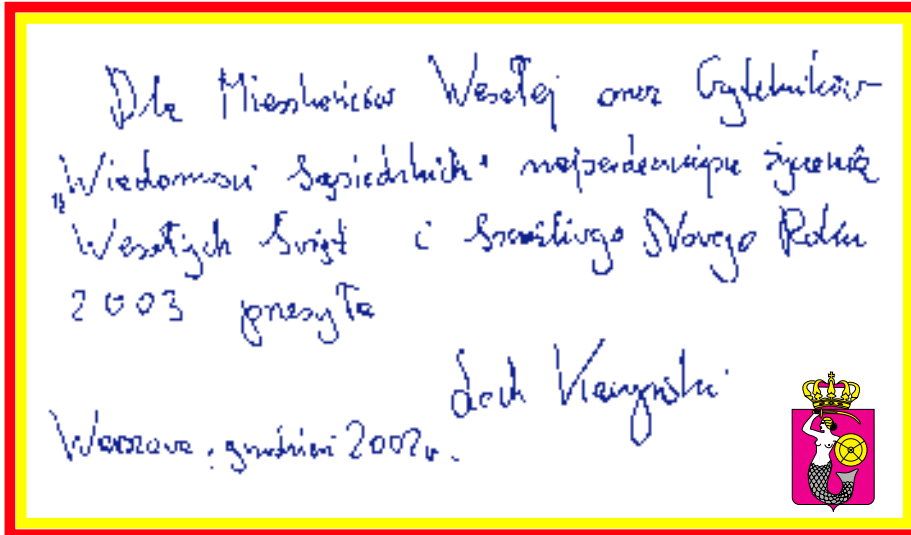 Dla Mieszkańców Wesołej oraz Czytelników
„Wiadomości Sąsiedzkich" najserdeczniejsze życzenia
Wesołych Świąt i Szczęśliwego Nowego Roku
2003 przesyła
Lech Kaczyński
Warszawa, grudzień 2002r.